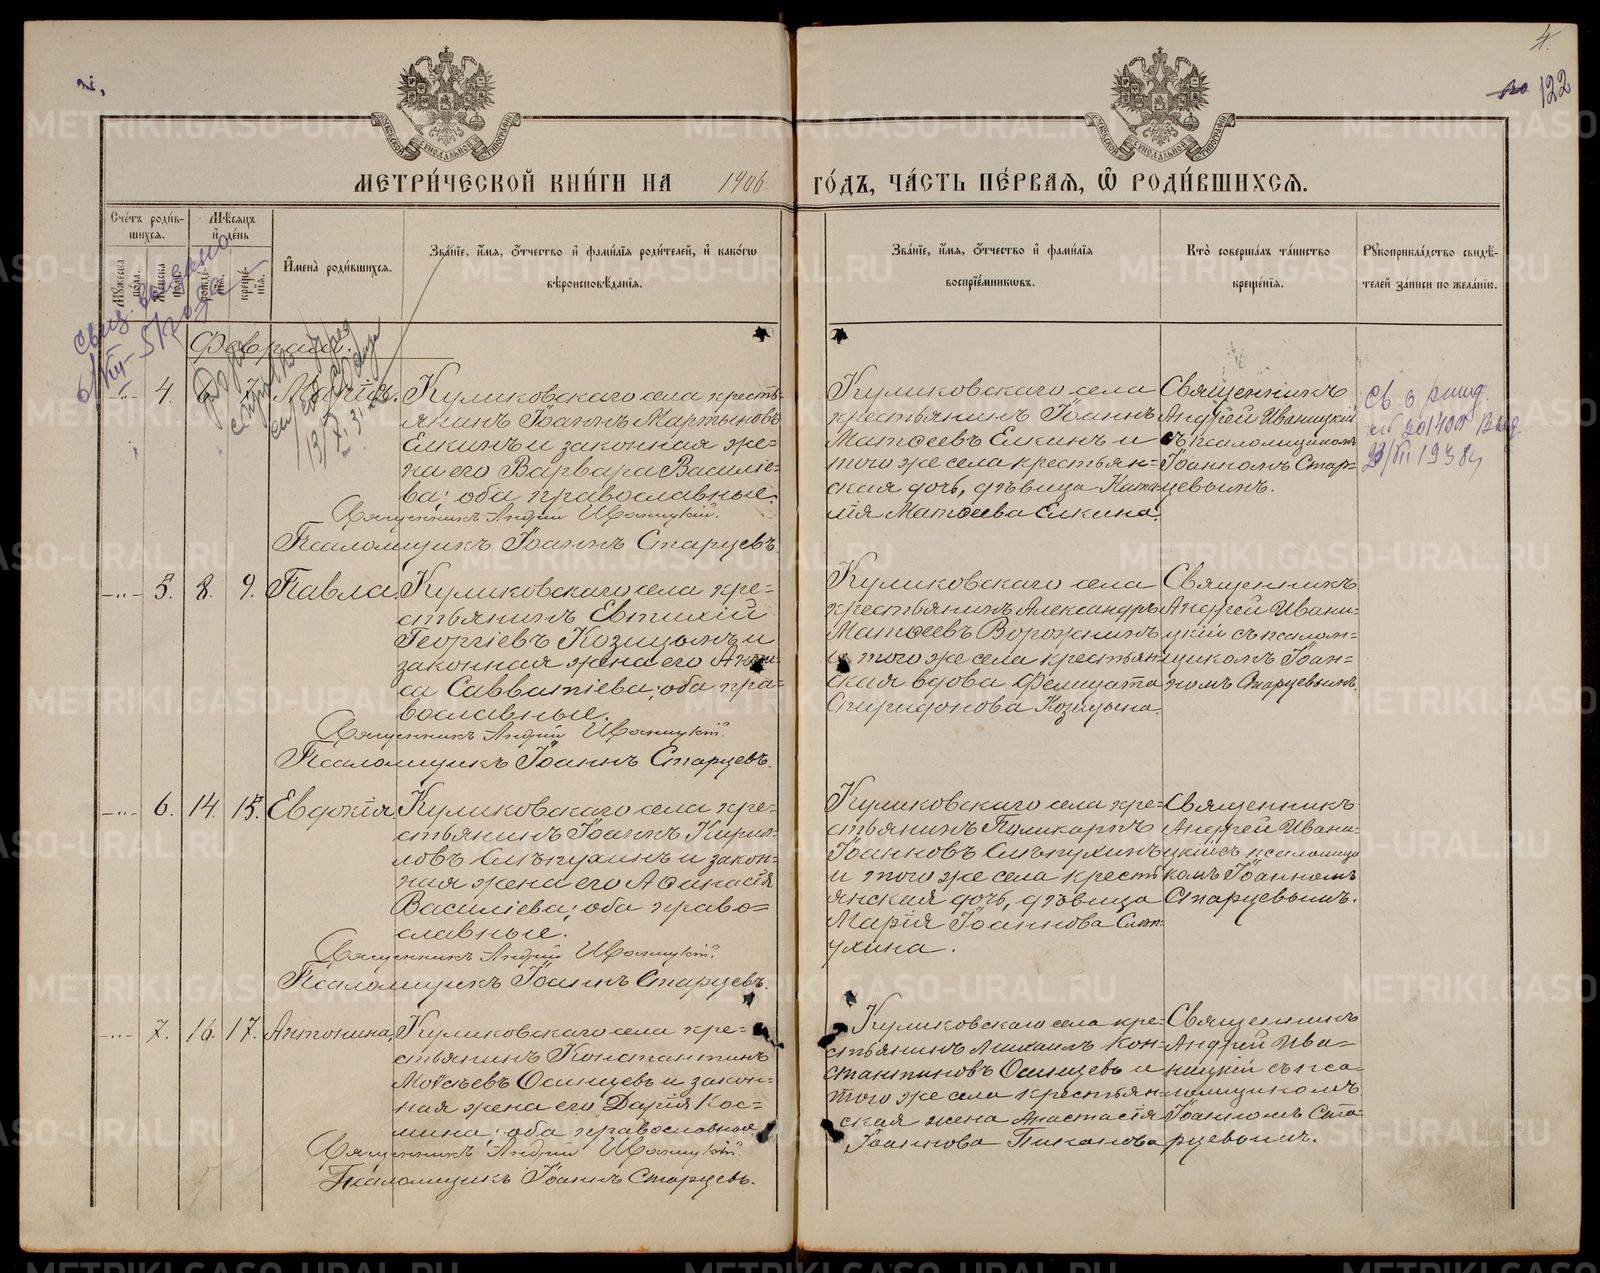 4.
122
МОСКОВСКОЙ СѴНОДАЛЬНОЙ ТИПОГРАФІИ
МОСКОВСКОЙ СѴНОДАЛЬНОЙ ТИПОГРАФІИ
МЕТРИ́ЧЕСКОЙ КНИ́ГИ НА 1906 ГО́ДЪ, ЧА́СТЬ ПЕ́РВАЯ, Ѿ РОДИ́ВШИХСЯ.
Сче́тъ роди́в-
шихся.
Мѣсяцъ
и҆ де́нь
Мꙋжеска по́ла.
Женска по́ла.
рожде́-
нїѧ.
креще́-
нїѧ.
И҆мена̀ роди́вшихся.
Зва́нїе, и҆́мѧ, ѻ҆́тчество и҆ фами́лїѧ роди́телей, и҆ како́гѡ
вѣроисповѣ́данїѧ.
Зва́нїе, и҆́мѧ, ѻ҆́тчество и҆ фами́лїѧ
воспрїе́мникѡвъ.
Кто̀ соверша́лъ та́инство
креще́нїѧ.
Рꙋкоприкла́дство свидѣ́-
телей за́писи по жела́нїю.
Февраль.
4. 6. 7. Марія.
Куликовскаго села кресть-
янинъ Іоаннъ Мартыновъ
Елкинъ и законная же-
на его Варвара Василіе-
ва; оба православные.
Священникъ Андрей Иваницкій.
Псаломщикъ Іоаннъ Старцевъ
Куликовскаго села
крестьянинъ Іоаннъ
Матѳеевъ Елкинъ и
того же села крестьян-
ская дочь, дѣвица Ката-
лія Матѳеева Елкина.
Священникъ
Андрей Иваницкій
съ псаломщикомъ
Іоанномъ Стар-
цевымъ.
-"- 5. 8. 9. Павла
Куликовскаго села кре-
стьянинъ Евтихій
Георгіевъ Козицынъ и
законная жена его
са Савватіева; оба пра-
вославные.
Священникъ Андрей Иваницкій.
Псаломщикъ Іоаннъ Старцевъ.
Куликовскаго села
крестьянинъ Александръ
Матѳеевъ Ворожнинъ
и того же села крестьян-
ская вдова Фелицата
Спиридонова Козицына.
Священникъ
Андрей Ивани-
цкій съ псалом-
щикомъ Іоан-
номъ Старцевымъ.
-"- 6. 14. 15. Евдокія
Куликовскаго села кре-
стьянинъ Іоаннъ Кирил-
ловъ Слѣпухинъ и закон-
ная жена его Аѳанасія
Василіева; оба право-
славные.
Священникъ Андрей Иваницкій.
Псаломщикъ Іоаннъ Старцевъ.
Куликовскаго села кре-
стьянинъ Поликарпъ
Іоанновъ Слѣпухинъ
и того же села кресть
янская дочь, дѣвица
Марія Іоаннова Слѣп-
ухина.
Священникъ
Андрей Ивани-
цкій съ псаломщи
комъ Іоанномъ
Старцевымъ.
-"- 7. 16. 17. Антонина,
Куликовскаго села кре-
стьянинъ Константинъ
Моѵсеевъ Осинцевъ и закон-
ная жена его Дарія Кос-
мина; оба православные
Священникъ Андрей Иваницкій.
Псаломщикъ Іоаннъ Старцевъ.
Куликовскаго села кре-
стьянинъ Михаилъ Кон-
стантиновъ Осинцевъ и
того же села крестьян-
ская жена Анастасія
Іоаннова Пиканова
Священникъ
Андрей Ива-
ницкій съ пса-
ломщикомъ
Іоанномъ Ста-
рцевымъ.
METRIKI.GASO-URAL.RU